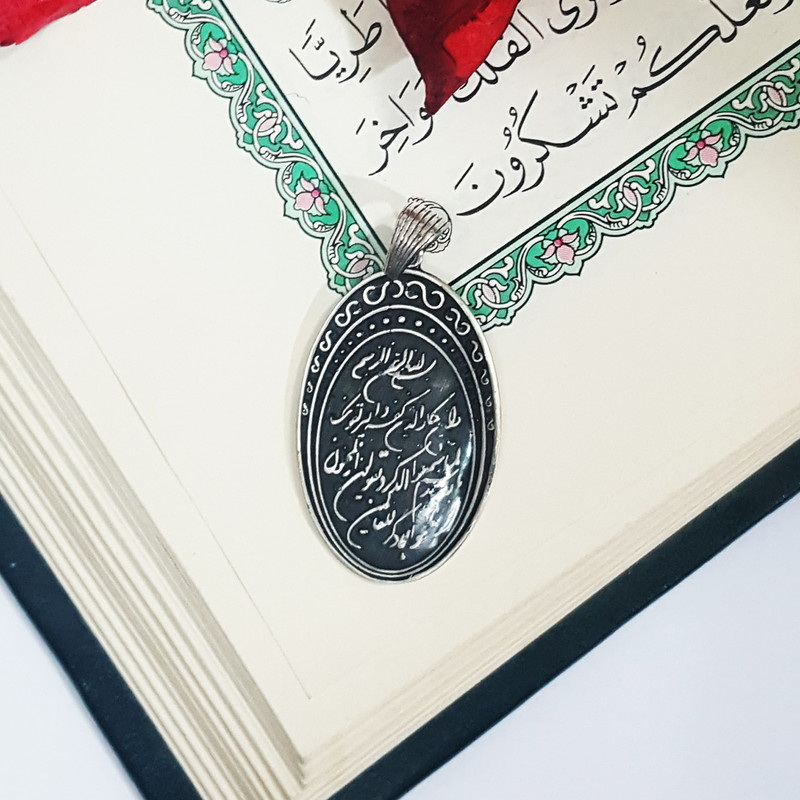 طَرِيًّا
وَتَرَى الْفُلْكَ
وَلَعَلَّكُمْ تَشْكُرُونَ
بسم الله الرحمن الرحيم
وان يكاد الذين كفروا ليزلقونك
لما سمعوا الذكر ويقولون انه لمجنون
وما هو الا ذكر للعالمين